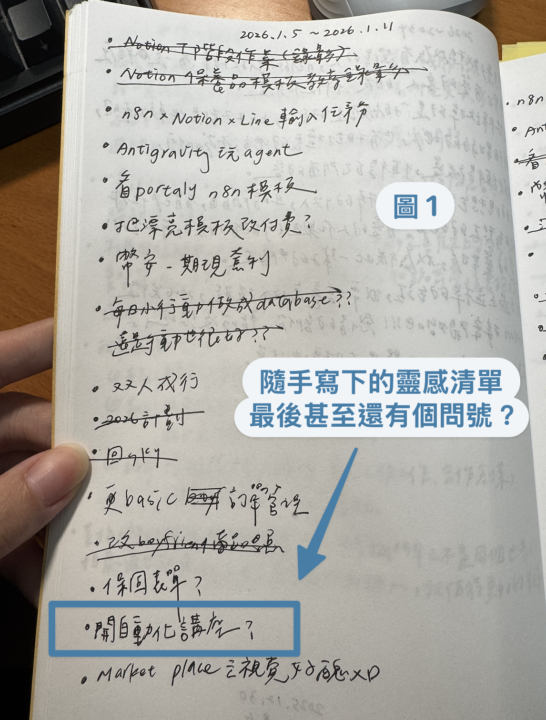 2026.1.5 ~ 2026.1.11
• Notion 下階段作業(錄影)
• Notion 保養品模板教學錄影
• n8n × Notion × Line 輸入任務
• Antigravity 玩 agent
• 看 portaly n8n 模板
圖 1
• 把漂亮模板改付費?
• 幣安-期現套利
• 每日小行動做成 database??
還是手動也很好??
隨手寫下的靈感清單
最後甚至還有個問號?
• 双人成行
• 2026 計劃
• 回
• 更 basic 訂單管理
• 改 boyfriend
• 保固表單?
• 開自動化講座?
• Market place 主視覺好醜 XD
• n8n
• 看